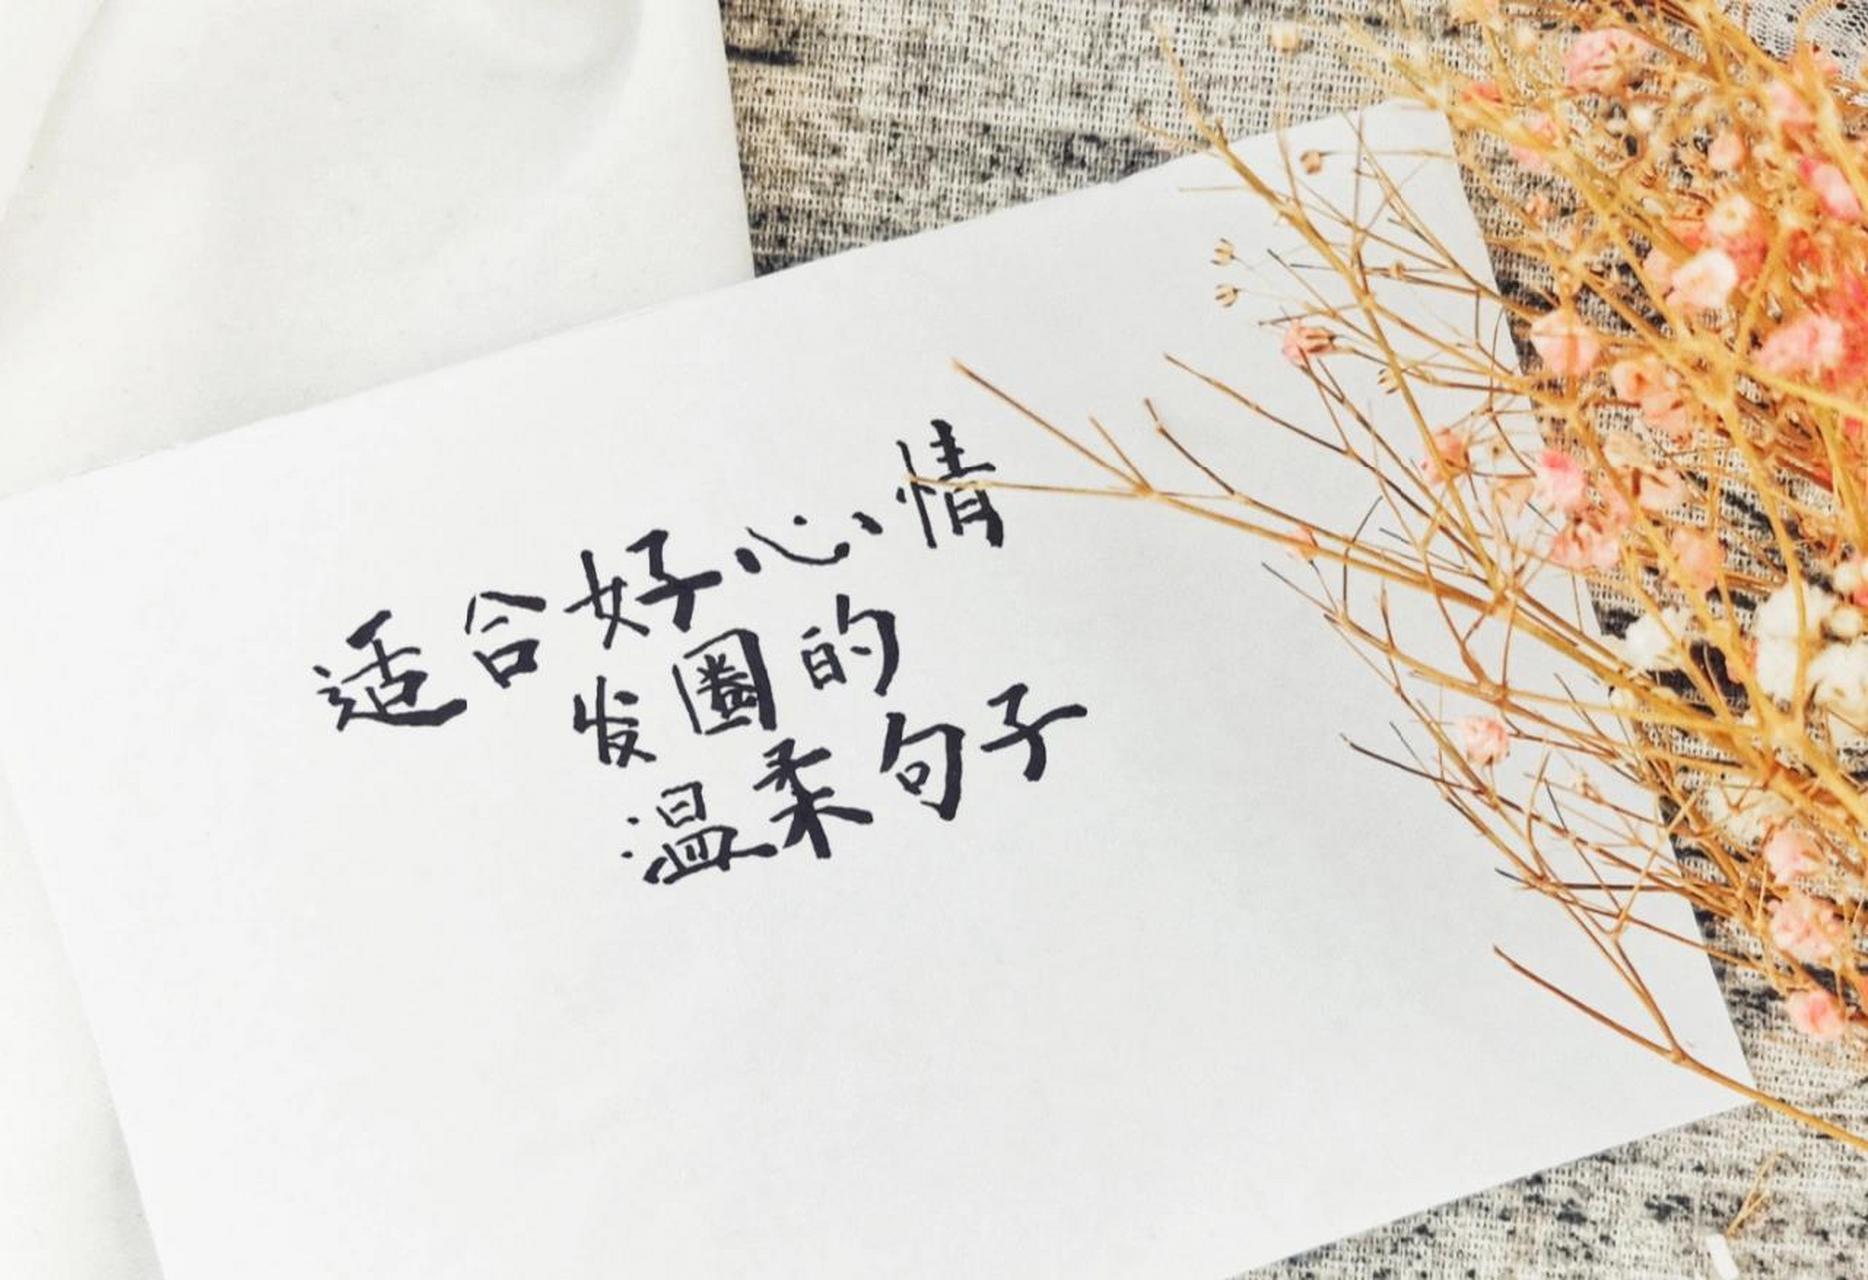 适合好心情
发圈的
温柔句子